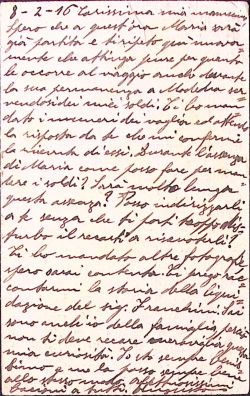 8-2-16 Carissima mia mammina
Spero che a quest'ora Maria sarà
già partita e ti ripeto qui nuova-
mente che attinga pure per quanto
le occorre al viaggio anche durante
la sua permanenza a Modena ser-
vendosi dei miei soldi. Ti ho man-
dato i numeri dei vaglia ed attendo
la risposta da te che mi confermi
la ricevuta d'essi. Durante l'assenza
di Maria come posso fare per man-
dare i soldi? Sarà molto lunga
questa assenza? Posso indirizzarli
a te senza che ti porti troppo dis-
turbo il recarti a riscuoterli?
Ti ho mandato altre fotografie
spero sarai contenta. Ti prego rac-
contarmi la storia della liqui-
dazione del sig. Franchini. Già
sono anch'io della famiglia, perciò
non ti deve recare meraviglia questa
mia curiosità. Io sto sempre
e me la passo sempre bene
allo stesso modo. Affettuosissimi
bacioni a tutti. Augusto